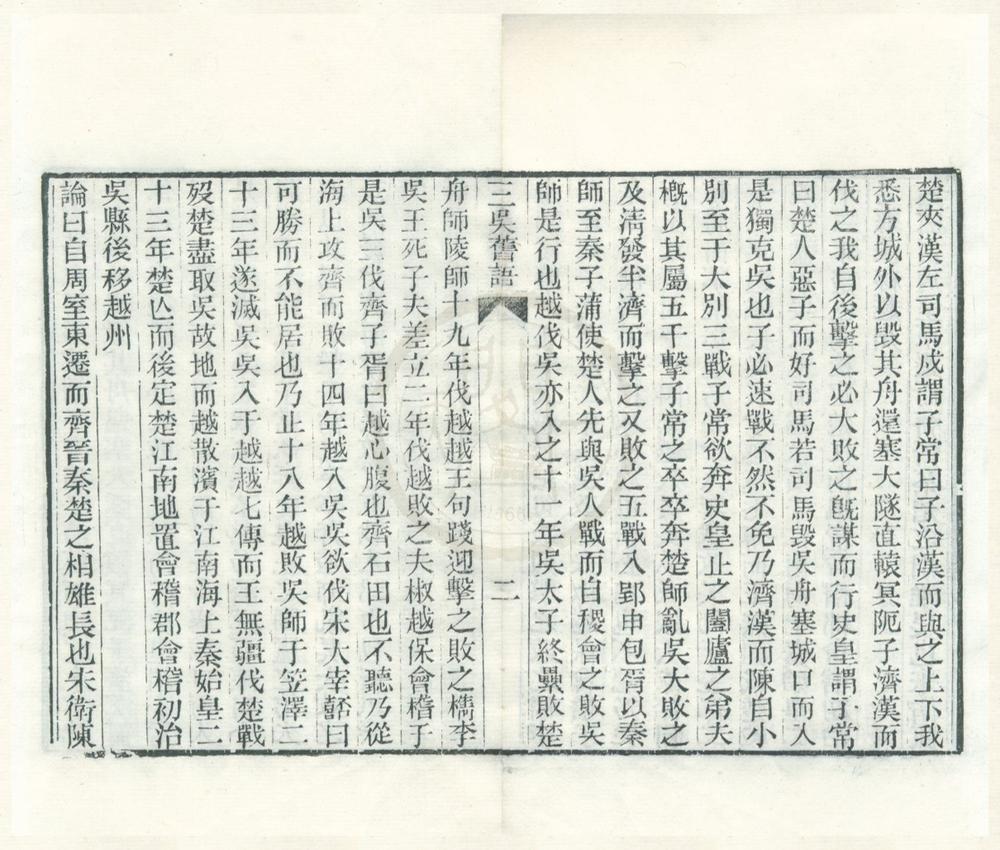 楚夾漢左司馬戍謂子常曰子沿漢而與之上下我
悉方城外以毀其舟還塞大隧直轅冥阨子濟漢而
伐之我自後擊之必大敗之旣謀而行史皇謂子常
曰楚人惡子而好司馬若司馬毀吳舟塞城口而入
是獨克吳也子必速戰不然不免乃濟漢而陳自小
別至于大別三戰子常欲奔史皇止之闔廬之弟夫
槪以其屬五千擊子常之卒卒奔楚師亂吳大敗之
及淸發半濟而擊之又敗之五戰入郢申包胥以秦
師至秦子蒲使楚人先與吳人戰而自稷會之敗吳
師是行也越伐吳亦入之十一年吳太子終纍敗楚
三吳舊語
二
舟師陵師十九年伐越越王句踐迎擊之敗之檇李
吳王死子夫差立二年伐越敗之夫椒越保會稽于
是吳三伐齊子胥曰越心腹也齊石田也不聽乃從
海上攻齊而敗十四年越入吳吳欲伐宋大宰嚭曰
可勝而不能居也乃止十八年越敗吳師于笠澤二
十三年遂滅吳吳入于越越七傳而王無疆伐楚戰
歿楚盡取吳故地而越散濱于江南海上秦始皇二
十三年楚亾而後定楚江南地置會稽郡會稽初治
吳縣後移越州
論曰自周室東遷而齊晉秦楚之相雄長也宋衛陳